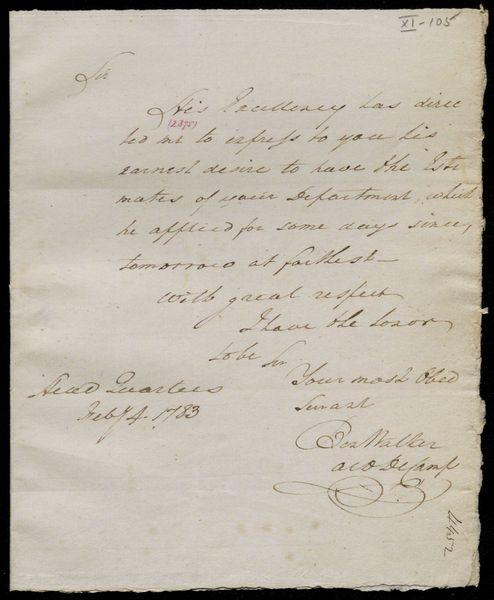 XI-105
Sir
His Excellency has direc
(2395)
ted me to express to you his
earnest desire to have the Esti
mates of your Department, which
he applied for some days since,
tomorrow at farthest—
With great respect
I have the honor
to be Sir
Your most Obed
Servant
Head Quarters
Feby 4. 1783
Ben Walker
aid De Camp
4452